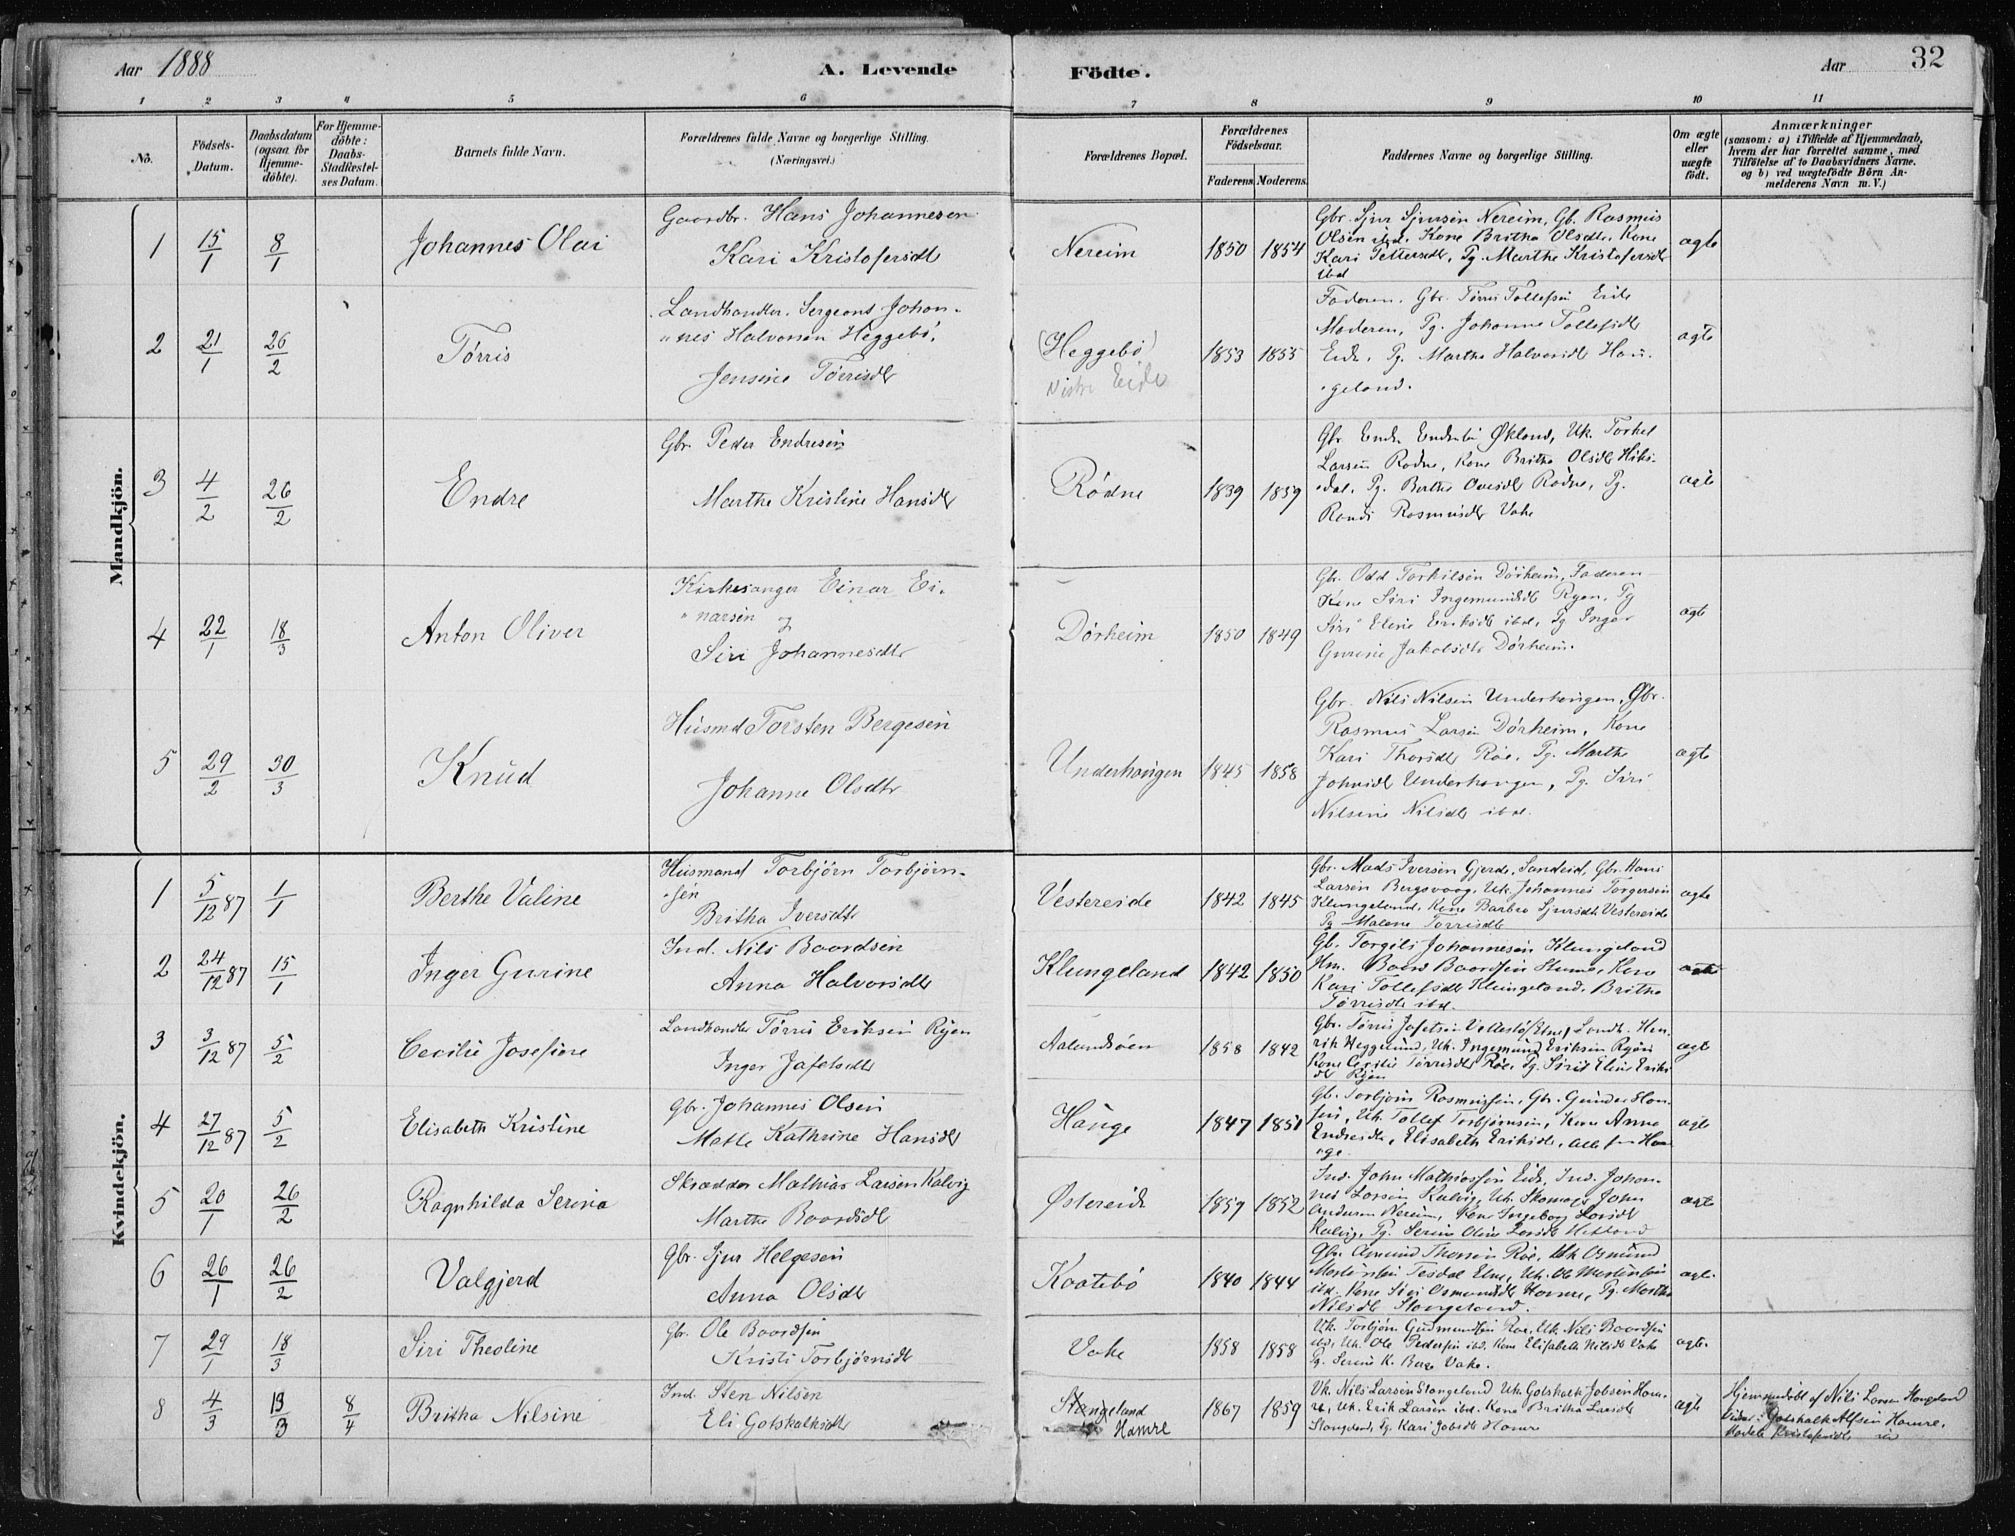 Aar 1888
A. Levende
Födte.
Aar
32
1 2 3 4 5 6 7 8 9 10 11
No.
Födsels-
Datum.
Daabsdatum
(ogsaa for
Hjemme-
döbte).
For Hjemme-
döbte:
Daabs-
Stadfæstel-
ses Datum.
Barnets fulde Navn.
Forældrenes fulde Navne og borgerlige Stilling.
(Næringsvei.)
Forældrenes Bopæl.
Forældrenes
Födselsaar.
Faderens. Moderens.
Faddernes Navne og borgerlige Stilling.
Om ægte
eller
uægte
födt.
Anmærkninger
(saasom: a) i Tilfælde af Hjemmedaab,
hvem der har forrettet samme, med
Tilföielse af to Daabsvidners Navne.
og b) ved uægtefödte Börn An-
melderens Navn m.V.)
Mandkjön.
1 15/1 8/1 Johannes Olai
Gaardbr. Hans Johannesen
Kari Kristofersdt
Nereim 1850 1854
Gbr. Sjur Sjursen Nereim, Gb. Rasmus
Olsen ibd. Kone Britha Olsdtr. Kone
Kari Pettersdt, Pg. Marthe Kristofersdt
ibd
ægte
2 21/1 26/2 Tørris
Landhandler. Sergeant Johan-
nes Halvorsen Heggebø.
Jensine Tørrisdt
(Heggebø)
Eide
1853 1855
Faderen. Gbr. Tørris Tollefsen Eide
Moderen, Pg. Johanne Tollefsdt
Eide, Pg. Marthe Halvorsdt Hau-
geland.
ægte
3 4/2 26/2 Endre
Gbr. Peder Endresen
Marthe Kristine Hansdt
Rødne 1839 1859
Gbr. Endre Endresen Økland, Uk. Torkel
Larsen Rødne, Kone Britha Olsdt Hiks-
dal, Pg. Berthe Rødne, Pg.
Randi Rasmusdt Vake
ægte
4 22/1 18/3 Anton Oliver
Kirkesanger Einar Ei-
narsen
Siri Johannesdtr
Dørheim 1850 1849
Gbr. Odd Torkilsen Dørheim, Faderen
Kone Siri Ingemundsdt Ryen, Pg
Siri Eline Eriksdt ibd., Pg Inger
Gurine Jakobsdt Dørheim.
ægte
5 29/2 30/3 Knud
Husmd Torsten Bergesen
Johanne Olsdtr
Underhaugen 1845 1858
Gbr. Nils Nilsen Underhaugen, Gbr.
Rasmus Larsen Dørheim, Kone
Kari Thorsdt Røe, Pg. Marthe
Underhaugen, Pg. Siri
Nilsine Nilsdt ibd.
ægte
Kvindekjön.
1 5/12 87 1/1 Berthe Valine
Husmand Torbjørn Torbjørn-
sen
Britha Iversdtr
Vestereide 1842 1845
Gbr. Mads Iversen Gjerde, Sandeid, Gbr. Hans
Larsen Bergsvaag, Uk. Johannes Torgersen
Klungeland, Kone Barbra Sjursdt Vestereide
Pg Malene Torrisdt
ægte
2 24/12 87 15/1 Inger Gurine
Ind. Nils Baardsen
Anna Halvorsdt
Klungeland 1842 1850
Gb. Torgils Johannesen Klungeland
Hm. Baard Baardsen Kone
Kari Tollefsdt Klungeland, Britha
Tørrisdt ibd.
ægte
3 3/12 87 5/2 Cecilie Josefine
Landhandler Tørris Eriksen Ryen
Inger Jafetsdt
1858 1842
Gbr. Tørris Jafetsen Landh. Hen-
rik Heggelund, Uk. Ingemund Eriksen Ryen
Kone Cecilie Tørrisdt Røe, Pg. Siri Eline Eriks
dt Ryen
ægte
4 27/12 87 5/2 Elisabeth Kristine
Gbr. Johannes Olsen
Mette Kathrine Hansdt
Hauge 1847 1851
Gb. Torbjørn Rasmussen, Gbr. Gunder Han-
sen, Uk. Tollef Torbjørnsen, Kone Anna
Endresdt, Elisabeth Eriksdt, alle fra Hau-
ge.
ægte
5 20/1 26/2 Ragnhilda Serina
Skrædder Mathias Larsen Kalvig
Marthe Baardsdt
Østereide 1859 1852
Ind. John Mathiassen Eide, Ind. Johan-
nes Larsen Kalvig, Uk. Skomager John
Andersen Nereim, Kone Ingeborg Larsdt
Kalvig, Pg. Serine Oline Larsdt
ægte
6 26/1 26/2 Valgjerd
Gbr. Sjur Helgesen
Anna Olsdt
Kaatebø 1840 1844
Gbr. Amund Thorsen Røe, Uk Osmund
Mortensen Tesdal Etne, Uk. Ole Mortensen
ibd. Kone Siri Osmundsdt Hamre, Pg. Marthe
Nilsdt Stangeland.
ægte.
7 29/1 18/3 Siri Theoline
Gbr. Ole Baardsen
Kristi Torbjørnsdt
Vake 1858 1858
Uk. Torbjørn Gudmundsen Røe, Uk. Nils Baardsen
ibd., Uk. Ole Pedersen ibd. Kone Elisabeth Nilsdt Vake
Pg. Serine K. Vake.
ægte.
8 4/3 13/3 8/4 Britha Nilsine
Ind. Sten Nilsen
Eli Gotskalksdt
Stangeland
Hamre
1867 1859
Uk. Nils Larsen Stangeland Uk. Gotskalk Jobsen Ham-
re, Uk. Erik Larsen ibd. Kone Britha Larsdt
Stangeland, Pg. Kari Jobsdt Hamre
ægte
Hjemmedøbt af Nils Larsen Stangeland
Vidner: Gotskalk Hamre,
Kristofersdt